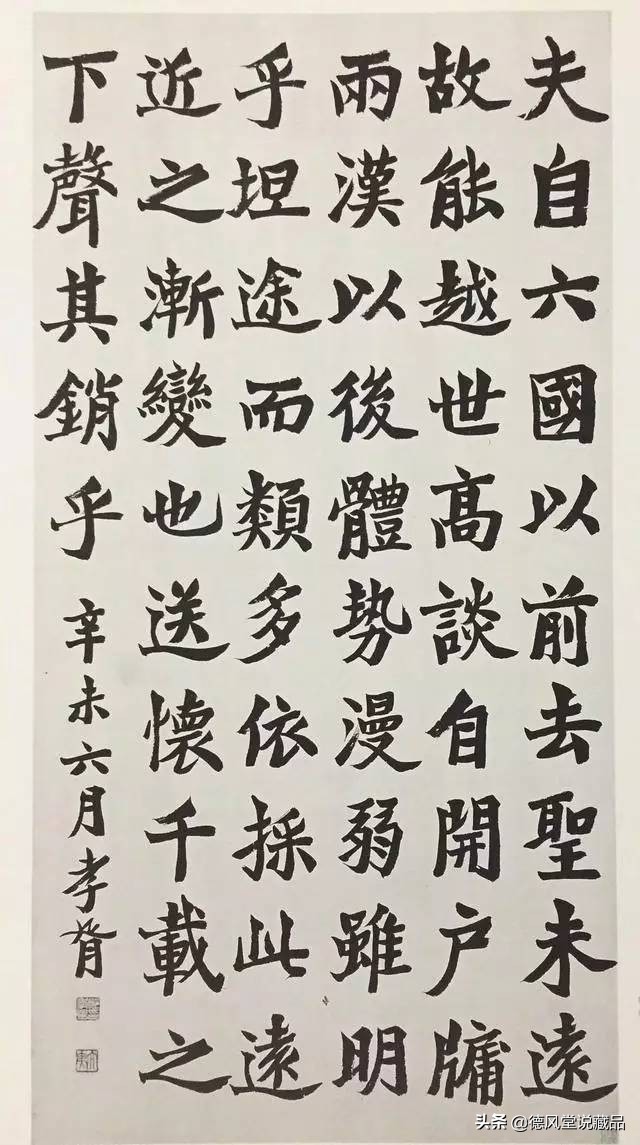 夫自六國以前去聖未遠
故能越世高談自開户牖
兩漢以後體勢漫弱雖明
乎坦途而類多依採此遠
近之漸變也送懷千載之
下聲其銷乎
辛未六月孝胥
头条 @德风堂说藏品